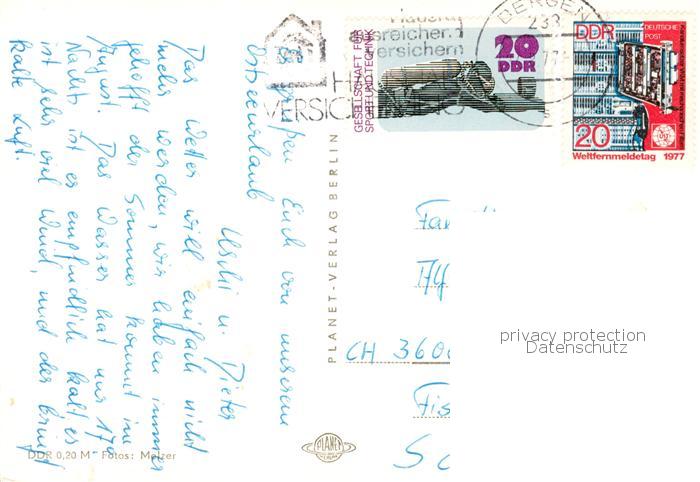 Hausrat
reichern
versichern
VERSICHERUNG
BERGEN
GESELLSCHAFT FÜR
SPORT UND TECHNIK
20
DDR
DDR
DEUTSCHE
POST
20
Weltfernmeldetag 1977
Euch von unserem
Ostseeurlaub
Uschi u. Dieter
Das Wetter will einfach nicht
mehr werden, wir haben immer
gehofft der Sommer kommt im
August. Das Wasser hat nur 17°
Nachts ist es empfindlich kalt es
ist sehr viel Wind, und der bringt
kalte Luft.
PLANET-VERLAG BERLIN
Fa
CH 360
Fis
privacy protection
Datenschutz
PLANET
DDR 0,20 M Fotos: Melzer